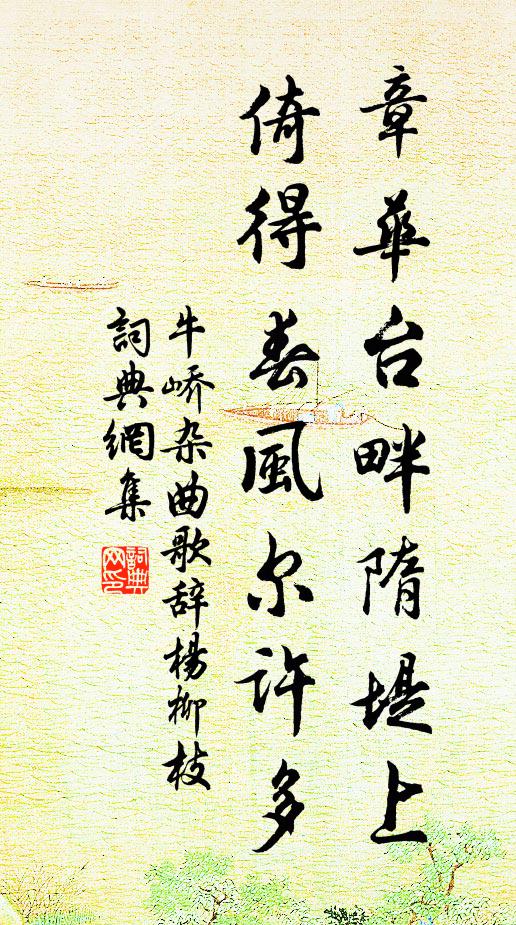 章華台畔隋堤上
倚得春風尔許多
牛嶠杂曲歌辞楊柳枝
詞典網集
詞典
网印